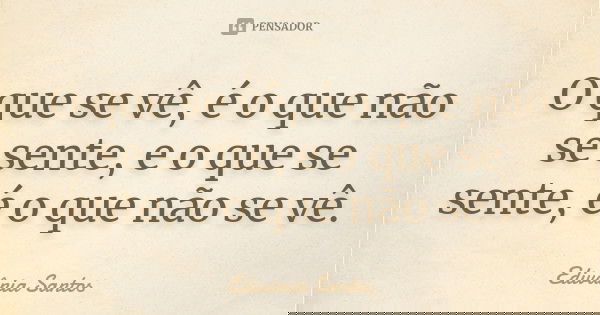 PENSADOR
O que se vê, é o que não
se sente, e o que se
sente, é o que não se vê.
Edivânia Santos